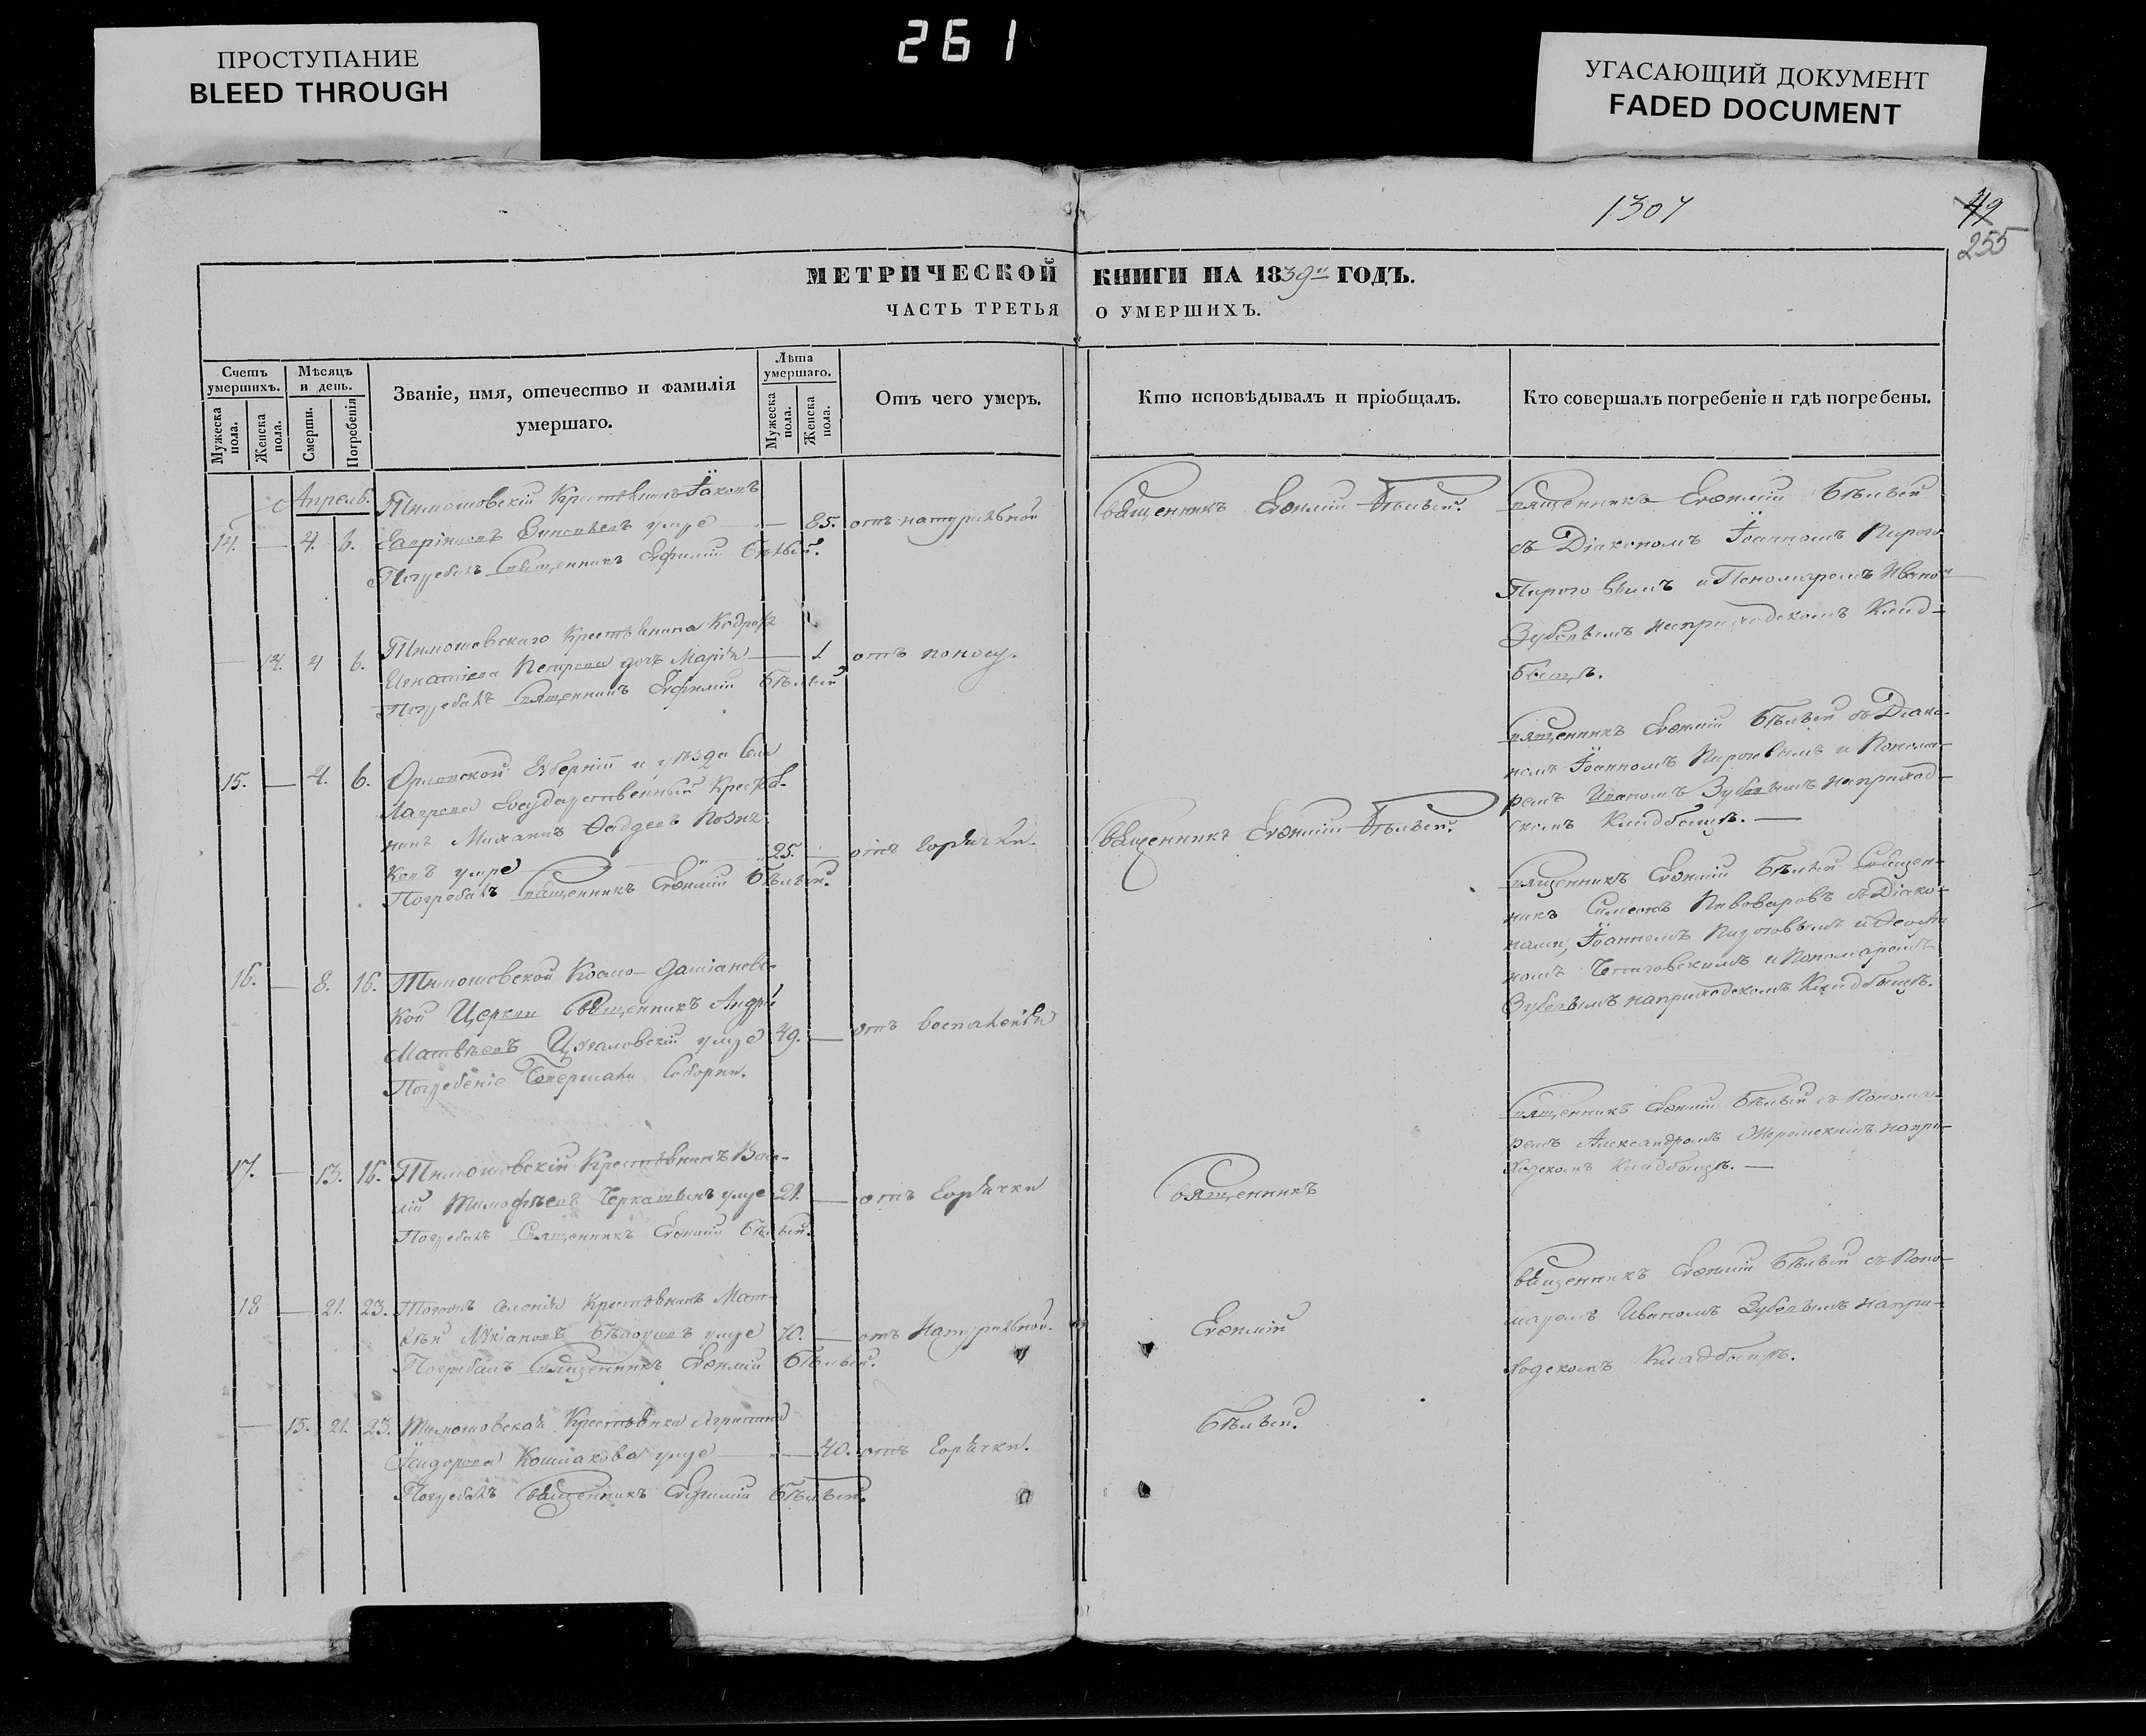 ПРОСТУПАНИЕ
BLEED THROUGH
261
УГАСАЮЩИЙ ДОКУМЕНТ
FADED DOCUMENT
1307
49
255
МЕТРИЧЕСКОЙ КНИГИ НА 1839й ГОДЪ.
ЧАСТЬ ТРЕТЬЯ О УМЕРШИХЪ.
Счетъ умершихъ.
Мужеска пола.
Женска пола.
Мѣсяцъ и день.
Смерти.
Погребенія
Званіе, имя, отечество и фамилія
умершаго.
Лѣта умершаго.
Мужеска пола.
Женска пола.
Отъ чего умеръ.
Кто исповѣдывалъ и пріобщалъ.
Кто совершалъ погребеніе и гдѣ погребены.
Апрель.
14. 4. 6.
Тимошовскій Крестьянинъ Іаковъ
умре 85. отъ натуральной
Погребалъ Священникъ Евфимій Бѣлый.
Священникъ Евѳимій Бѣлый.
Священникъ Евѳимій Бѣлый
съ Діакономъ Іоанномъ Пирого
Пироговымъ и Пономаремъ Иваном
Зубовымъ наприходскомъ Клад-
бищѣ.
14. 4 6.
Тимошовскаго Крестьянина Кодрата
Игнатіева Петрова дочь Марія 1. отъ поносу.
Погребалъ Священникъ Евфимій Бѣлый
15. 4. 6.
Орловской Губерніи и уѣзда Села
Лаврова Государственный Крестья-
нинъ Михаилъ Фадеевъ Позня
ковъ умре 25. отъ Горячки.
Погребалъ Священникъ Евѳимій Бѣлый.
Священникъ Евѳимій Бѣлый.
Священникъ Евѳимій Бѣлый съ Діако-
номъ Іоанномъ Пироговымъ и Понома-
ремъ Иваномъ Зубовымъ наприход-
скомъ Кладбищѣ.
16. 8. 16.
Тимошовской Космо-Даміановс-
кой Церкви Священникъ Андрей
Матвѣевъ умре 49. отъ воспаленія
Погребеніе Совершали Соборни.
Священникъ Евѳимій Бѣлый Священ-
никъ Симеонъ Пивоваровъ съ Діако-
нами, Іоанномъ Пироговымъ и
и Пономаремъ
Зубовымъ наприходскомъ Кладбищѣ.
17. 13. 16.
Тимошовскій Крестьянинъ Васи-
лій Тимофѣевъ умре 21. отъ Горячки
Погребалъ Священникъ Евѳимій Бѣлый.
Священникъ
Священникъ Евѳимій Бѣлый съ Понома-
ремъ Александромъ напри-
ходскомъ Кладбищѣ.
18 21. 23.
Тогожъ Селенія Крестьянинъ Мат-
вѣй Лукіановъ умре 70. отъ Натуральной.
Погребалъ Священникъ Евѳимій Бѣлый.
Евѳимій
Священникъ Евѳимій Бѣлый съ Поно-
маремъ Иваномъ Зубовымъ напри-
ходскомъ Кладбищѣ.
15. 21. 23.
Тимошовская Крестьянка Агрипина
Ісидорова Кошлакова умре 40. отъ Горячки.
Погребалъ Священникъ Евфимій Бѣлый.
Бѣлый.